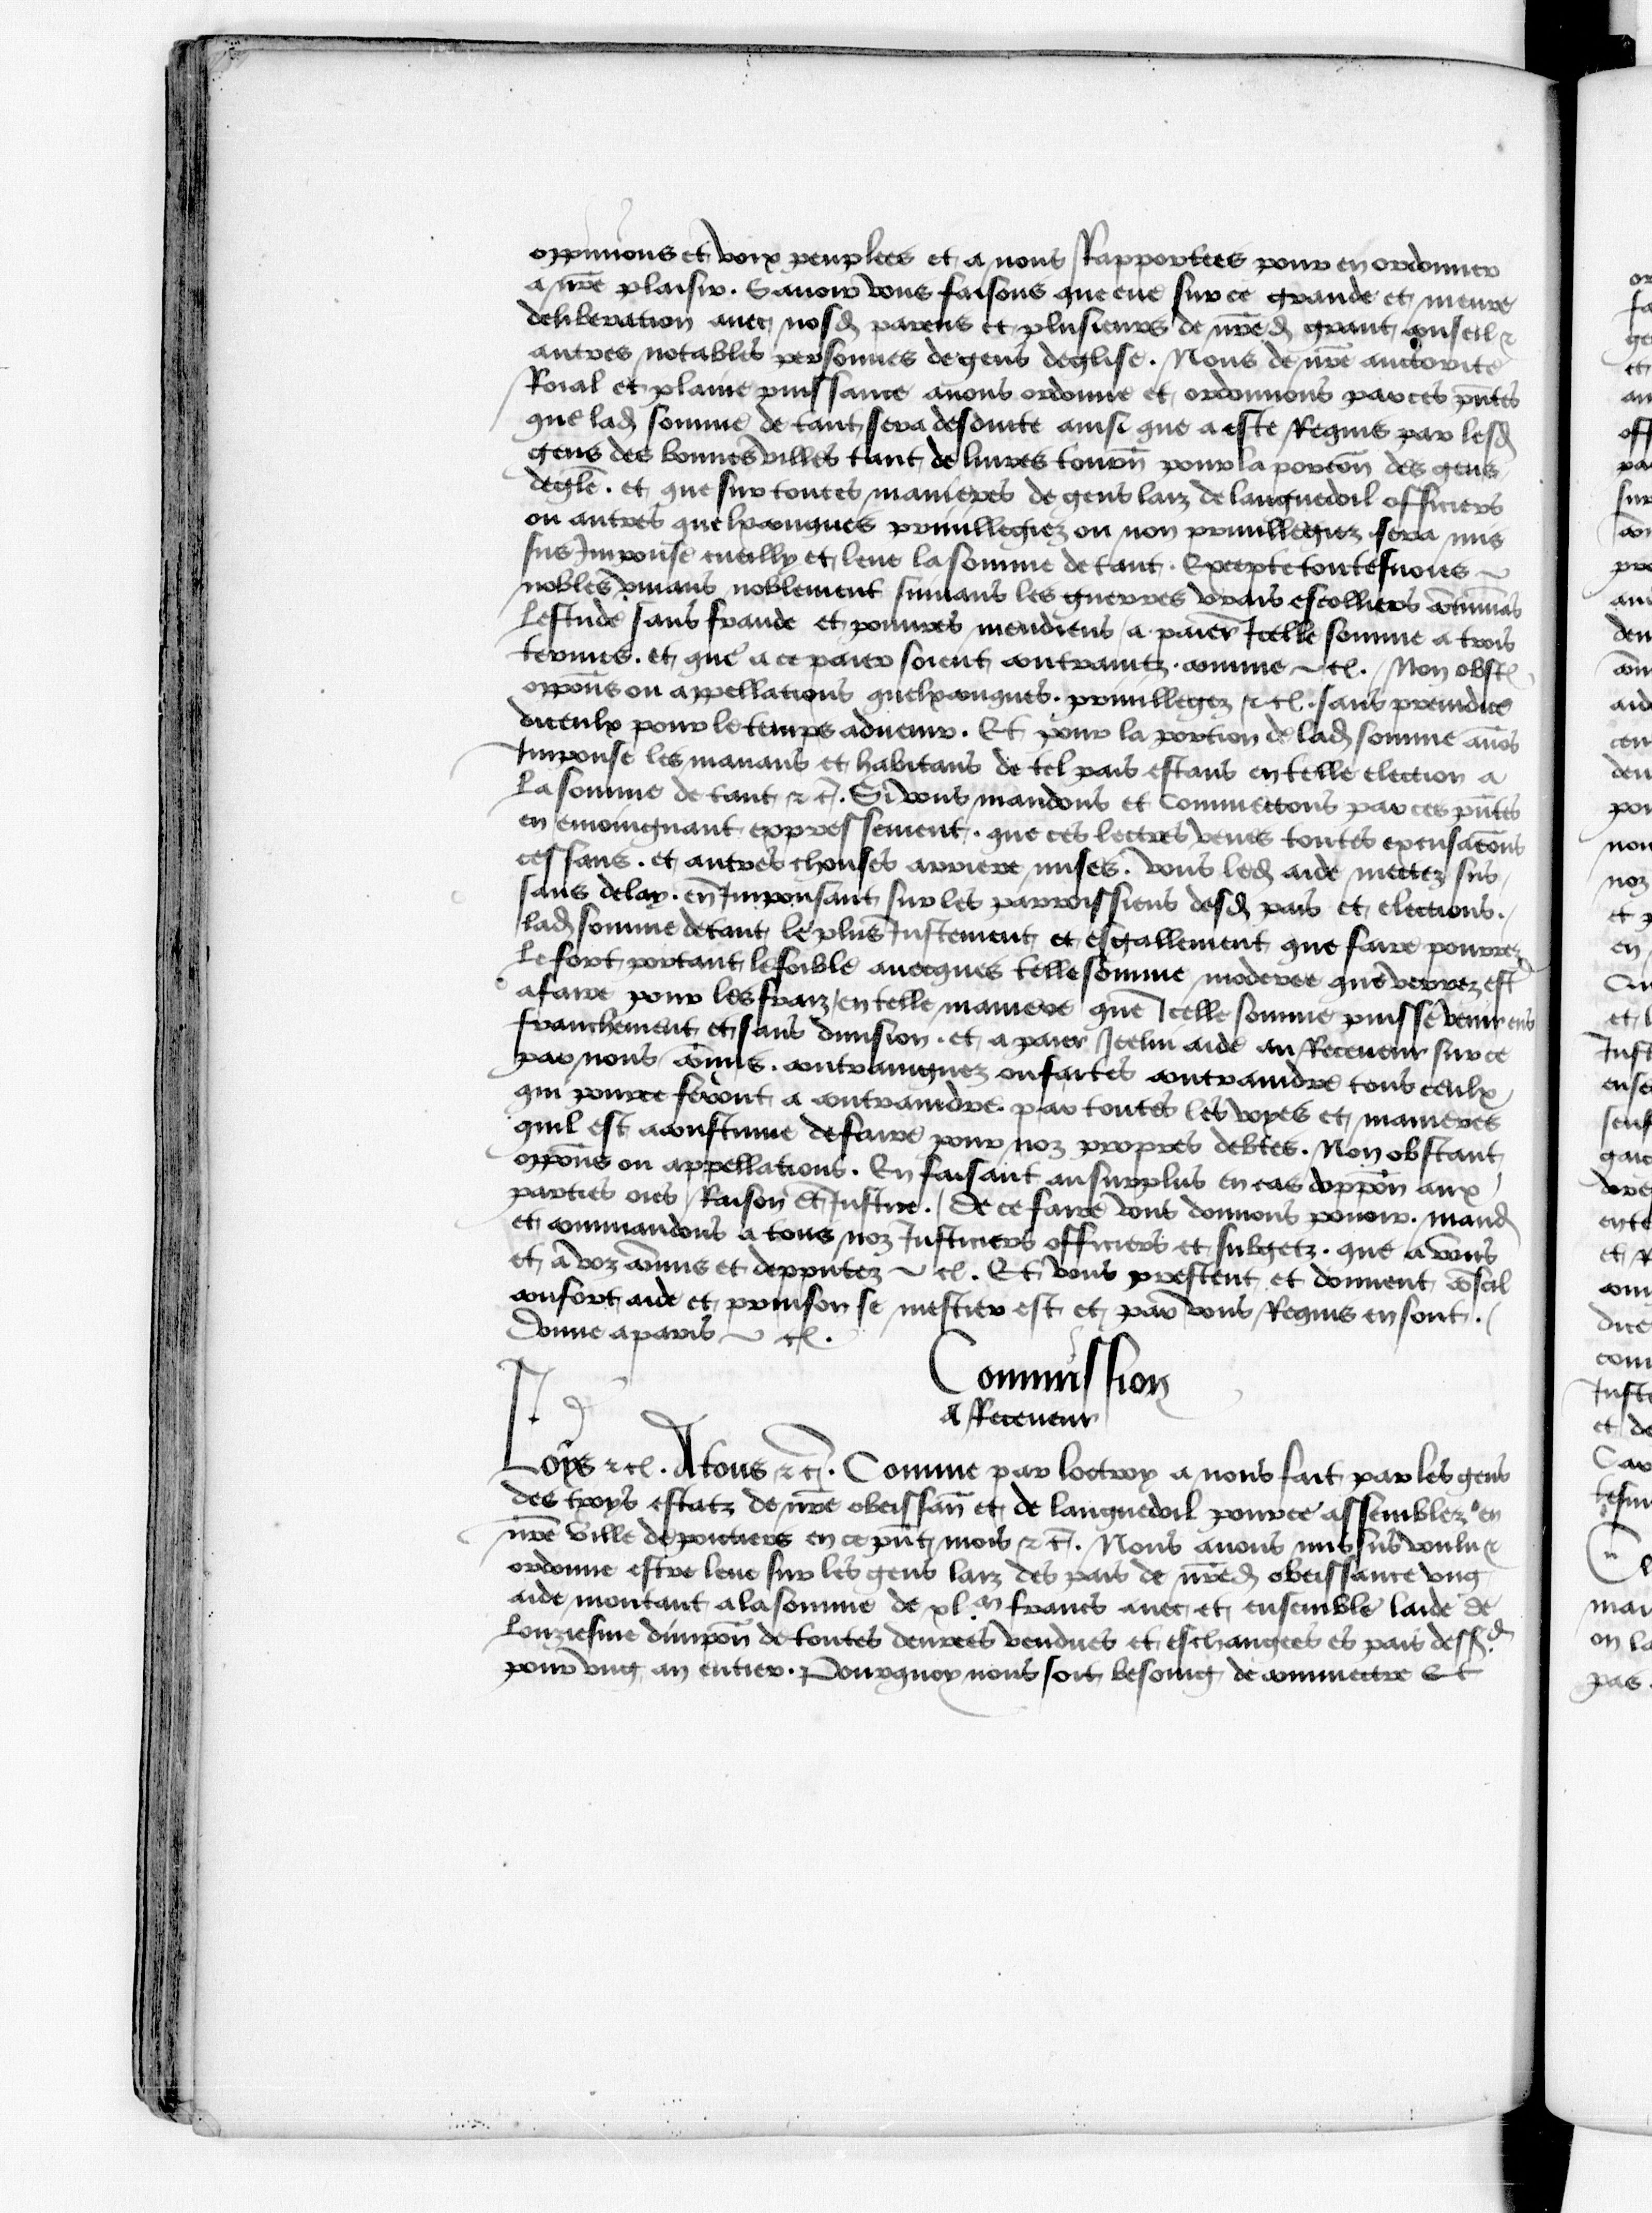 oppinions et voix peuplees et a nous Rapportees pour en ordonner
a nr̃e plaisir. Sauoir vous faisons que eue sur ce grande et meure
deliberation auec nosd parens et plusieurs de nr̃ed grant conseil &
autres notables personnes de gens deglise. Nous de nr̃e auctorite
Roial et plaine puissance auons ordonne et ordonnons par ces pn̄tes
que lad somme de tant sera desduite ainsi que a este Requis par lesd
gens des bonnes villes tant de liures tourñ pour la porcõn des gens
degl̃e. et que sur toutes manieres de gens laiz de languedoil officiers
ou autres quelxconques preuillegiez ou non preuillegiez sera mis
sus Impouse cueilly et leue la somme de tant. Excepte toutesuoies
nobles viuans noblement suiuans les guerres vrais escolliers cōtinuãs
lestude sans fraude et pouures mendiens a paier Icelle somme a trois
termes. et que a ce paier soient contrainctz. comme & c̃. Non obst
oppõns ou appellations quelxconques. preuillegez & c̃. sans preiudice
diceulx pour le temps aduenir. Et pour la portion de lad somme auõs
Impouse les manans et habitans de tel pais estans en telle election a
la somme de tant & c̃. Si vous mandons et commectons par ces pn̄tes
en enioignant expressement. que ces lectres veues toutes excusacõns
cessans. et autres chouses arriere mises. vous led aide mettez sus
sans delay. en Impousant sur les parroissiens desd pais et elections.
lad somme de tant le plus Iustement et esgallement que faire pourrez
le fort portant le foible auecques telle somme moderee que verrez est
a faire pour les fraiz en telle maniere que Icelle somme puisse venir ens
franchement et sans diuision. et a paier Icelui aide au Receueur sur ce
par nous cõmis. contraingnez ou faictes contraindre tous ceulx
qui pource seront a contraindre. par toutes les voyes et manieres
quil est acoustume de faire pour noz propres debtes. Non obstant
oppõns ou appellations. En faisant au surplus en cas doppõn aux
parties oies Raison et Iustice. De ce faire vous donnons pouoir. mand
et commandons a tous noz Iusticiers officiers et subgetz. que a vous
et a voz cõmis et depputez & c̃. Et vous prestent et donnent cõseil
confort aide et prinson se mestier est et par vous Requis en sont.
Donne a paris & c̃.
Commission
a Receueur
Loys & c̃. A tous & c̃. Comme par loctroy a nous fait par les gens
des troys estatz de nr̃e obeissañ et de languedoil pource assemblez en
nr̃e ville de poictiers en ce pn̄t mois & c̃. Nous auons mis sus voulu &
ordonne estre leue sur les gens laiz des pais de nr̃ed obeissance vng
aide montant a la somme de xl m francs auec et ensemble laide de
lonziesme dimpõn de toutes denrees vendues et eschangees es pais dessd
pour vng an entier. Pourquoy nous soit besoing de commectre Et